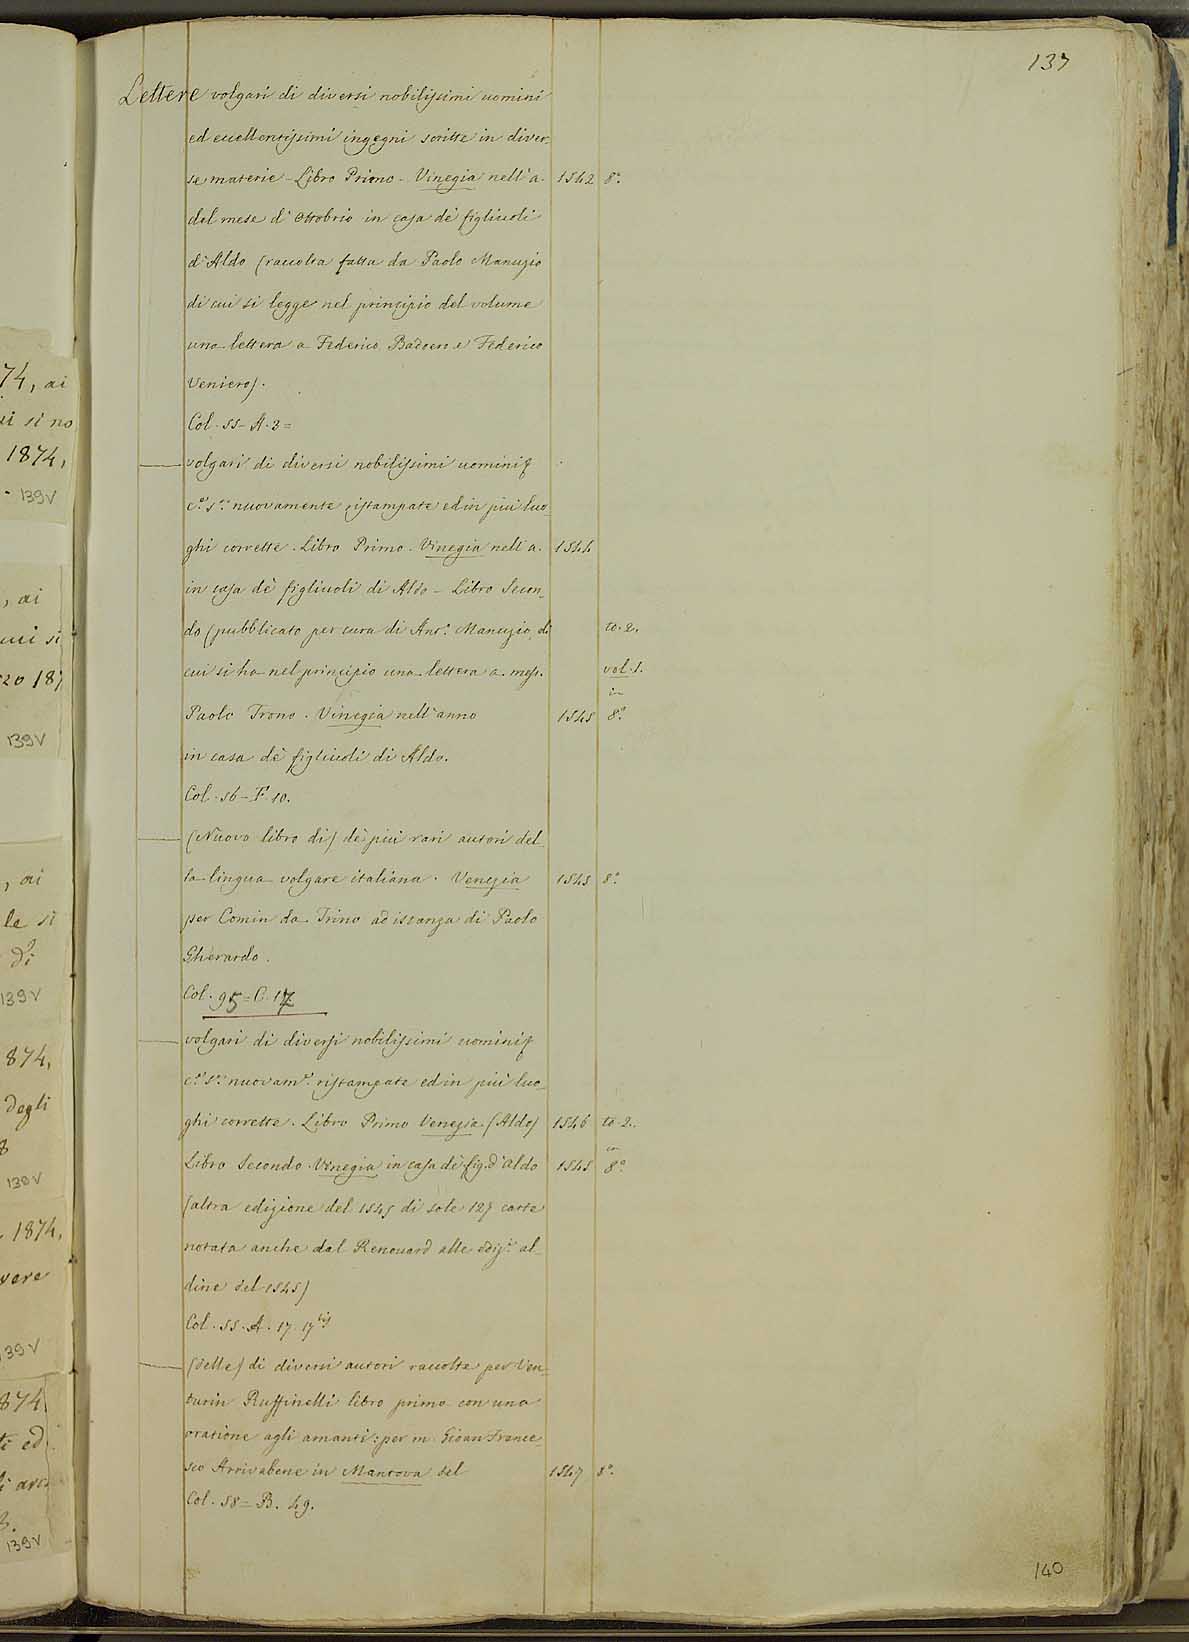 137
Lettere volgari di diversi nobilissimi uomini
ed eccellentissimi ingegni scritte in diver-
se materie - Libro Primo - Vinegia nell'a. 1542 8°.
del mese d'Ottobrio in casa de' figliuoli
d'Aldo (raccolta fatta da Paolo Manuzio
di cui si legge nel principio del volume
una lettera a Federico Badoer e Federico
Veniero).
Col. 55 - A. 3 =
— volgari di diversi nobilissimi uomini &
c.a s.a nuovamente ristampate ed in più luo-
ghi corrette. Libro Primo. Vinegia nell'a. 1544
in casa de' figliuoli di Aldo - Libro Secon-
do (pubblicato per cura di Ant.° Manuzio, di to. 2.
cui si ha nel principio una lettera a mess. vol. 1.
in
Paolo Trono. Vinegia nell'anno 1545 8°.
in casa de' figliuoli di Aldo.
Col. 56 - F. 10.
— (Nuovo libro di) de' più rari autori del-
la lingua volgare italiana. Venezia 1545 8°.
per Comin da Trino ad istanza di Paolo
Gherardo.
Col. 95 = C. 17
— volgari di diversi nobilissimi uomini &
c.a s.a nuovam.e ristampate ed in più luo-
ghi corrette. Libro Primo Venezia (Aldo) 1546 to. 2.
in
Libro Secondo. Vinegia in casa de' fig. d'Aldo 1545 8°.
(altra edizione del 1545 di sole 127 carte
notata anche dal Renouard alle ediz.i al-
dine del 1545)
Col. 55. A. 17. 17 bis
— (delle) di diversi autori raccolte per Ven-
turin Ruffinelli libro primo con una
oratione agli amanti: per m. Gioan France-
sco Arrivabene in Mantova del 1547 8°.
Col. 58 = B. 49.
140
74, ai
ui si no
1874,
139V
, ai
cui si
zo 187
139V
, ai
le si
di
139V
874,
degli
8
139V
1874,
vere
139V
874
ti ed
139V